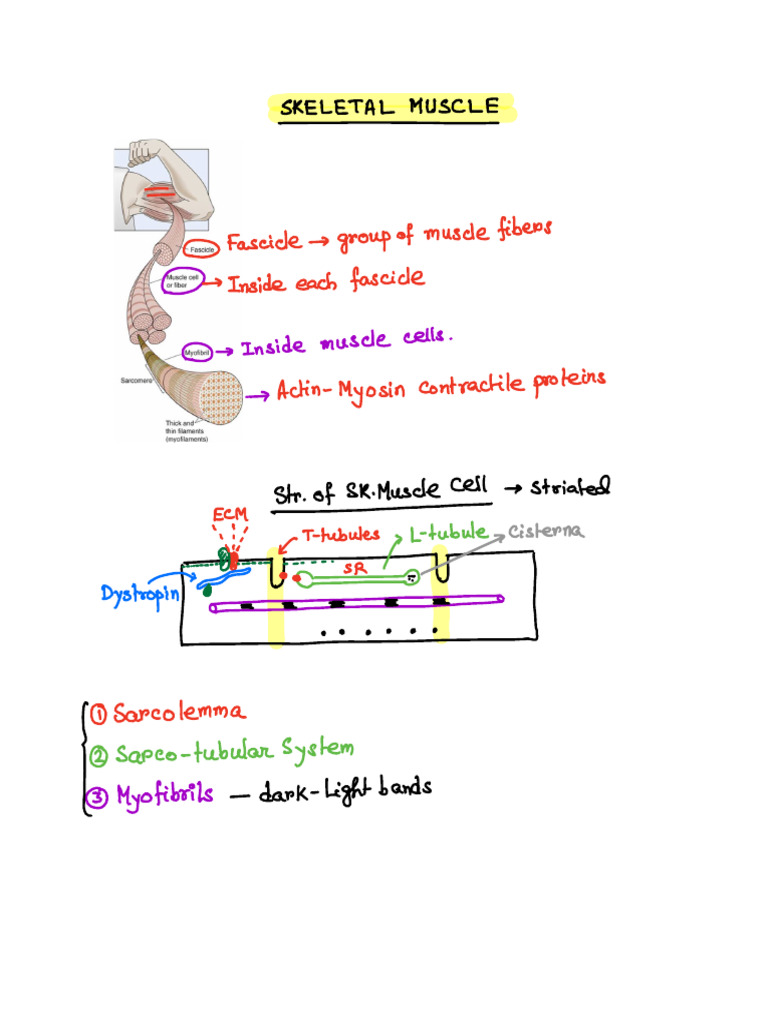 SKELETAL MUSCLE
Fascicle
Fascicle → group of muscle fibers
Muscle cell
or fiber
→ Inside each fascicle
Myofibril
→ Inside muscle cells.
Sarcomers
→ Actin-Myosin contractile proteins
Thick and
thin filaments
(myofilaments)
Str. of SK.Muscle Cell → Striated
ECM
T-tubules
L-tubule
Cisterna
SR
Dystropin
① Sarcolemma
② Sarco-tubular System
③ Myofibrils — dark-Light bands